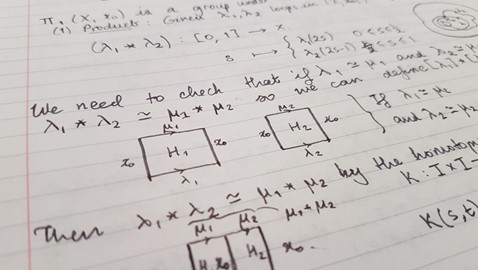 π₁(X, x₀) is a group under
(1) Product: Given λ₁, λ₂ loops in
(λ₁ * λ₂) : [0,1] → X
s ↦ { λ₁(2s) 0 ≤ s ≤ ½
λ₂(2s-1) ½ ≤ s ≤ 1
We need to check that if λ₁ ≃ μ₁ and λ₂ ≃
λ₁ * λ₂ ≃ μ₁ * μ₂ so we can define [λ₁]
μ₁ μ₂
x₀ H₁ x₀ H₂ x₀
λ₁ λ₂
} If λ₁ ≃ μ₁
and λ₂ ≃ μ₂
Then λ₁ * λ₂ ≃ μ₁ * μ₂ by the homotopy
K : I × I →
μ₁ * μ₂
μ₁ μ₂
H₁ x₀ H₂ x₀.
K(s,t)